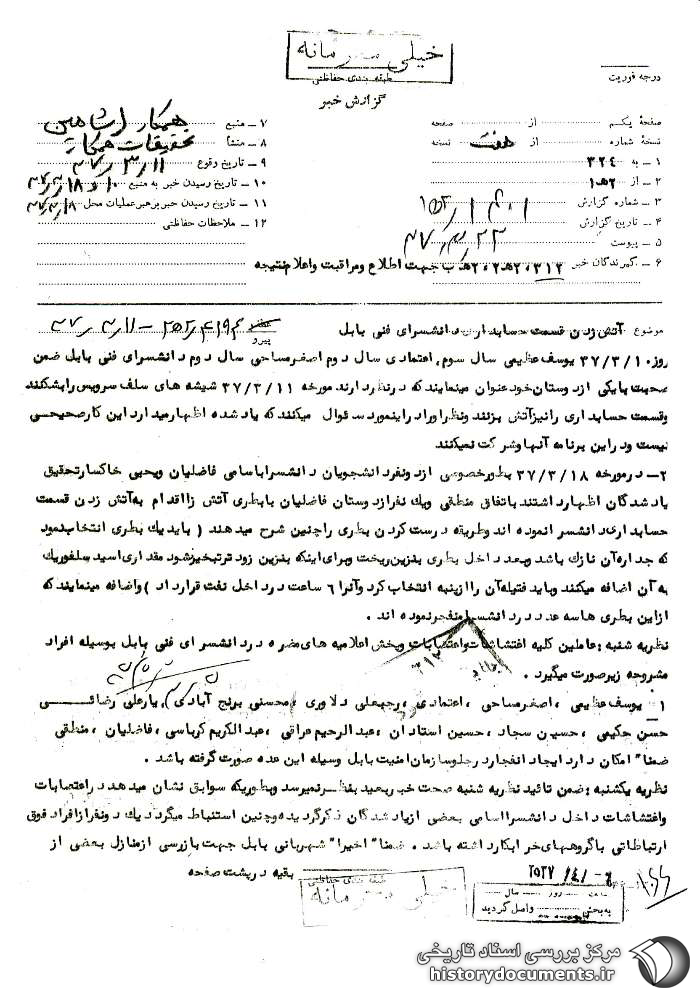 خیلی محرمانه
طبقه بندی حفاظتی
گزارش خبر
درجه فوریت
صفحهٔ یکم از صفحه
نسخهٔ شماره از هفت نسخه
۱ ــ به ۳۲۴
۲ ــ از ۲هـ۱
۳ ــ شماره گزارش
۴ ــ تاریخ گزارش
۵ ــ پیوست
۶ ــ گیرندگان خبر ۳۱۲ ، ۲هـ ، ۲هـ ب جهت اطلاع ومراقبت واعلام نتیجه
۷ ــ منبع همکار
۸ ــ منشأ تحقیقات همکار
۹ ــ تاریخ وقوع
۱۰ ــ تاریخ رسیدن خبر به منبع
۱۱ ــ تاریخ رسیدن خبر برهبر عملیات محل
۱۲ ــ ملاحظات حفاظتی
موضوع آتش زدن قسمت حسابداری دانشسرای فنی بابل
پیرو
روز ۳۷/۳/۱۰ یوسف عظیمی سال سوم ، اعتمادی سال دوم اصغر مساحی سال دوم دانشسرای فنی بابل ضمن
صحبت بایکی ازدوستان خود عنوان مینمایند که درنظر دارند مورخه ۳۷/۳/۱۱ شیشه های سلف سرویس رابشکنند
وقسمت حسابداری رانیزآتش بزنند ونظراوراد راینمورد سئوال میکنند که یاد شده اظهارمیدارد این کارصحیحی
نیست ودراین برنامه آنهاشرکت نمیکند
۲ــ درمورخه ۳۷/۳/۱۸ بطورخصوصی ازدونفردانشجویان دانشسراباسامی فاضلیان ویحیی خاکسارتحقیق
یاد شدگان اظهارداشتند باتفاق منطقی ویک نفرازدوستان فاضلیان بابطری آتش زااقدام به‌آتش زدن قسمت
حسابداری دانشسرانموده اند وطریقه درست کردن بطری راچنین شرح میدهند ( باید یک بطری انتخاب نمود
که جداره آن نازک باشد وبعد داخل بطری بنزین ریخت وبرای اینکه بنزین زود ترتبخیرشود مقداری اسید سلفوریک
به آن اضافه میکنند وباید فتیله آن راازپنبه انتخاب کرد وآنرا ۶ ساعت درداخل نفت قرارداد ) واضافه مینمایند که
ازاین بطری هاسه عدد درد انشسرامنفجرنموده اند .
نظریه شنبه : عاملین کلیه اغتشاشات واعتصابات وپخش اعلامیه های مضره دردانشسرای فنی بابل بوسیله افراد
مشروحه زیرصورت میگیرد .
۱ یوسف عظیمی ، اصغرمساحی ، اعتمادی ، رجبعلی دلاوری ، محسنی برنج آبادی ، یارعلی رضائی
حسن حکیمی ، حسین سجاد ، حسین استادان ، عبدالرحیم عراقی ، عبدالکریم کرباسی ، فاضلیان ، منطقی
ضمنا" امکان دارد ایجاد انفجاردرجلوسازمان امنیت بابل وسیله این عده صورت گرفته باشد .
نظریه یکشنبه : ضمن تائید نظریه شنبه صحت خبربعید بنظرنمیرسد وبطوریکه سوابق نشان میدهد دراعتصابات
واغتشاشات داخل دانشسرااسامی بعضی ازیاد شدگان ذکرگردیده وچنین استنباط میگردد یک دونفرازافراد فوق
ارتباطاتی باگروههای خرابکارداشته باشد . ضمنا" اخیرا" شهربانی بابل جهت بازرسی ازمنازل بعضی از
بقیه درپشت صفحه
طبقه بندی حفاظتی
خیلی محرمانه
ساعت روز سال
به‌بخش واصل گردید
مرکز بررسی اسناد تاریخی
historydocuments.ir